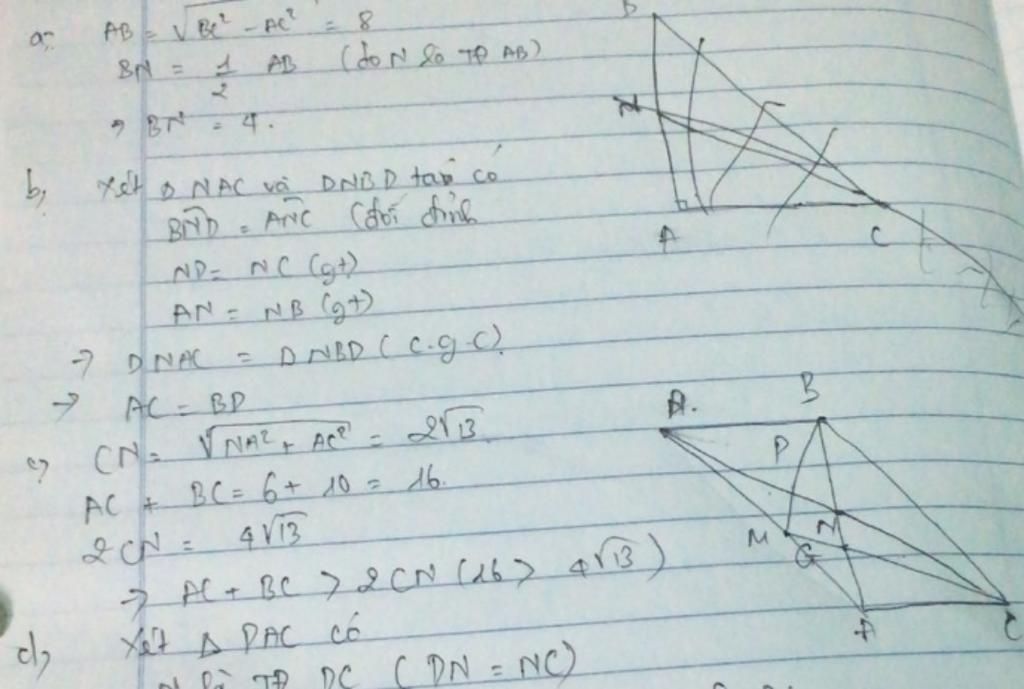 a, AB = √BC² - AC² = 8
BN = 1/2 AB (do N là TĐ AB)
→ BN = 4.
b, Xét Δ NAC và ΔNBD ta có
BND = ANC (đối đỉnh
ND = NC (gt)
AN = NB (gt)
→ ΔNAC = ΔNBD (c.g.c)
→ AC = BD
c, CN = √NA² + AC² = 2√13
AC + BC = 6 + 10 = 16.
2CN = 4√13
→ AC + BC > 2CN (16 > 4√13)
d, Xét Δ DAC có
N là TĐ DC (DN = NC)
B
N
A
C
A.
B
P
M
G
N
A
C